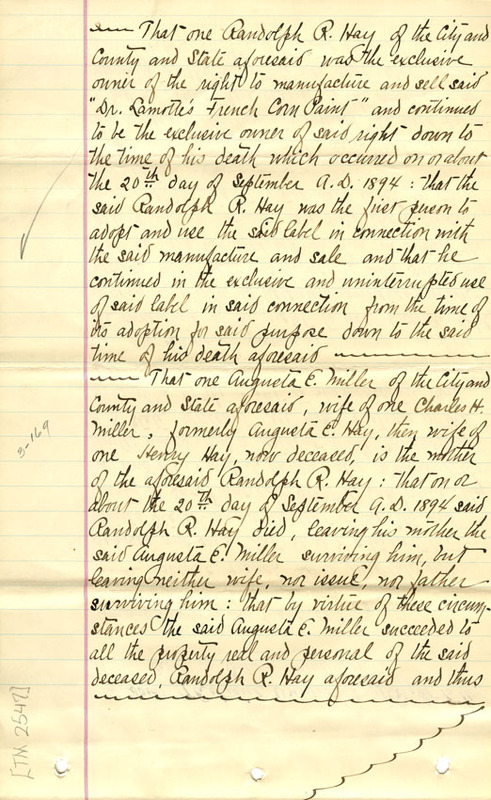 That one Randolph R. Hay of the City and
County and State aforesaid was the exclusive
owner of the right to manufacture and sell said
"Dr. Lamotte's French Corn Paint" and continued
to be the exclusive owner of said right down to
the time of his death which occurred on or about
the 20th day of September A.D. 1894: That the
said Randolph R. Hay was the first person to
adopt and use the said label in connection with
the said manufacture and sale and that he
continued in the exclusive and uninterrupted use
of said label in said connection from the time of
its adoption for said purpose down to the said
time of his death aforesaid
That one Augusta E. Miller of the City and
County and State aforesaid, wife of one Charles H.
Miller, formerly Augusta E. Hay, then wife of
one Henry Hay, now deceased, is the mother
of the aforesaid Randolph R. Hay: that on or
about the 20th day of September A.D. 1894 said
Randolph R. Hay died, leaving his mother the
said Augusta E. Miller surviving him, but
leaving neither wife, nor issue, nor father
surviving him: that by virtue of these circum-
stances the said Augusta E. Miller succeeded to
all the property real and personal of the said
deceased, Randolph R. Hay aforesaid and thus
3-169
[TM 2547]